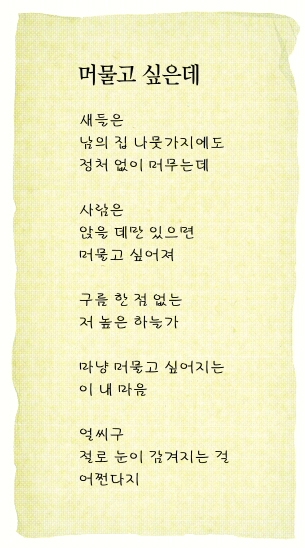 머물고 싶은데
새들은
남의 집 나뭇가지에도
정처 없이 머무는데
사람은
앉을 데만 있으면
머물고 싶어져
구름 한 점 없는
저 높은 하늘가
마냥 머물고 싶어지는
이 내 마음
얼씨구
절로 눈이 감겨지는 걸
어쩐다지